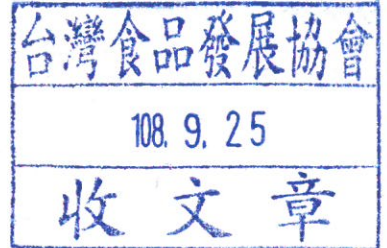 台灣食品發展協會
108. 9. 25
收文章